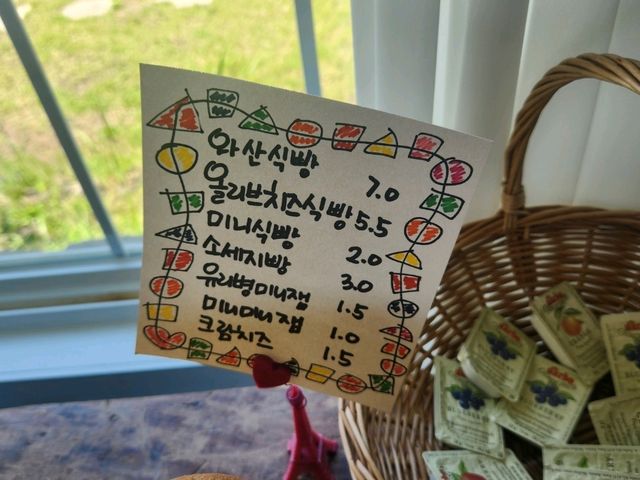 와산식빵 7.0
올리브치즈식빵 5.5
미니식빵 2.0
소세지빵 3.0
유리병미니잼 1.5
미니미니잼 1.0
크림치즈 1.5